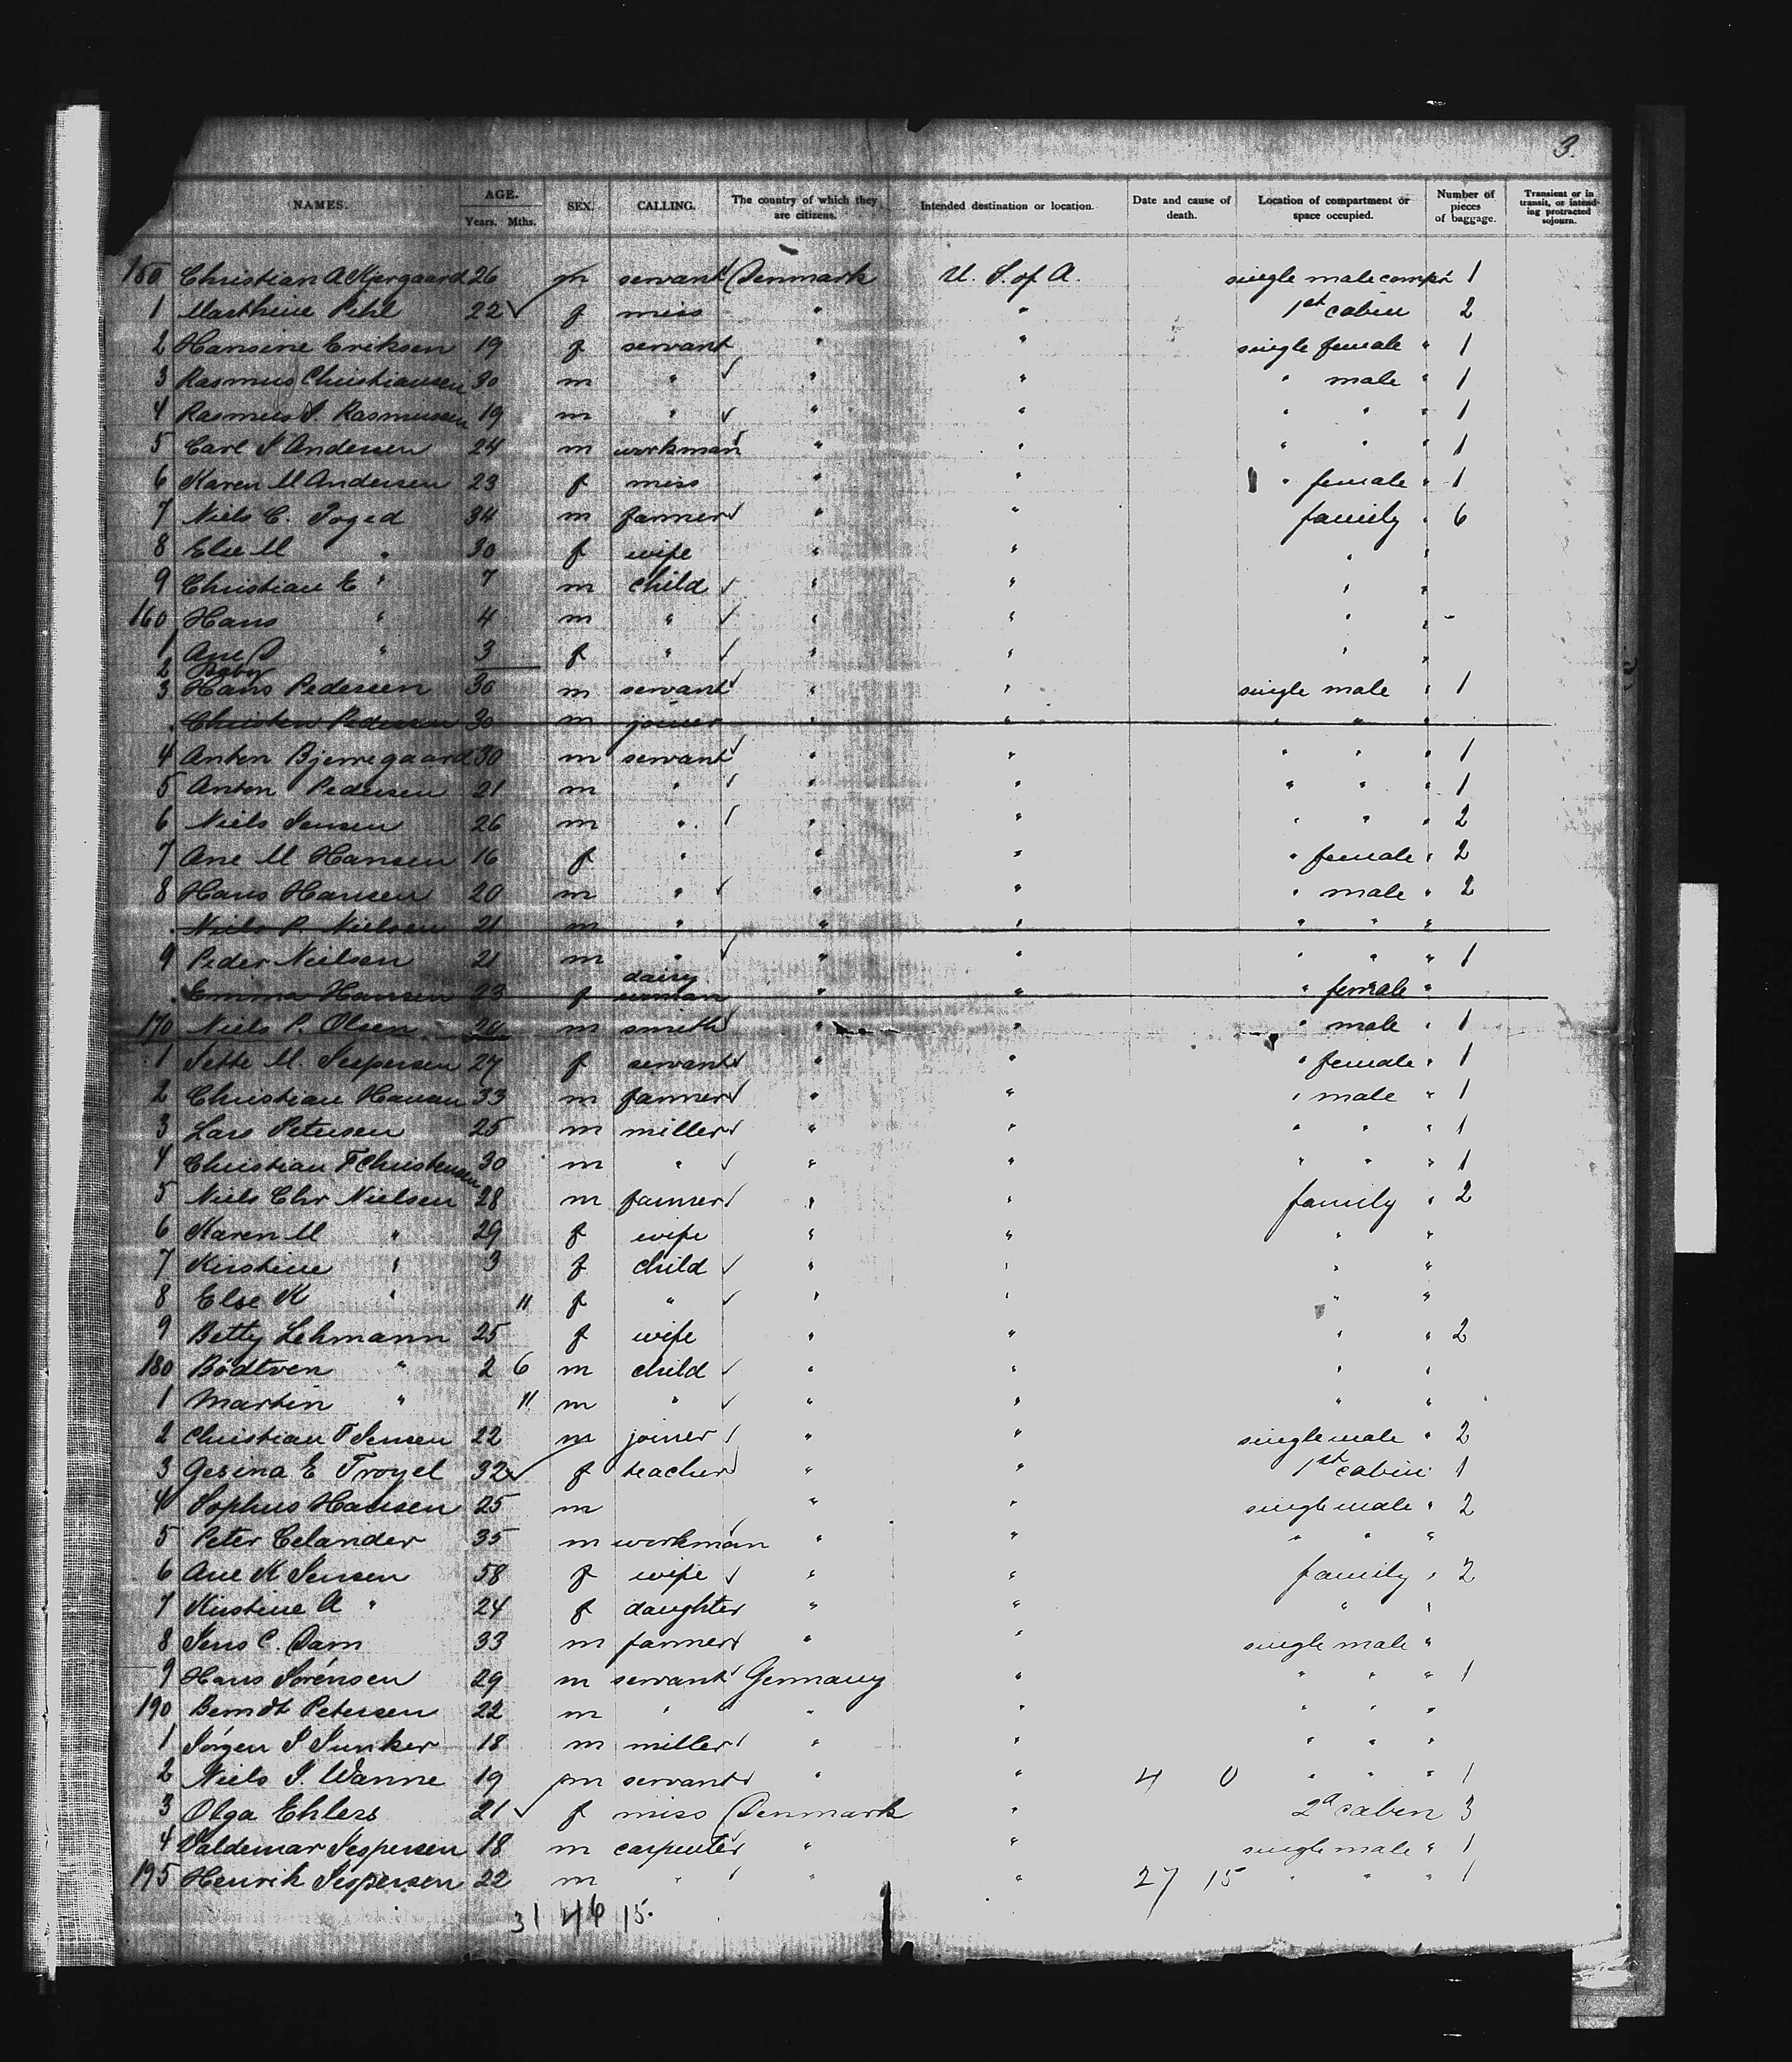 3.
NAMES. AGE. Years. Mths. SEX. CALLING. The country of which they are citizens. Intended destination or location. Date and cause of death. Location of compartment or space occupied. Number of pieces of baggage. Transient or in transit, or intending protracted sojourn.
150 Christian A Kjergaard 26 m servant Denmark U. S. of A. single male compt 1
1 Marthine Pihl 22 f miss " " 1st cabin 2
2 Hansine Eriksen 19 f servant " " single female " 1
3 Rasmus Christiansen 30 m " " " " male " 1
4 Rasmus S. Rasmussen 19 m " " " " " " 1
5 Carl S Andersen 24 m workman " " " " " 1
6 Karen M Andersen 23 f miss " " " female " 1
7 Niels C. Foged 34 m farmer " " family " 6
8 Else M " 30 f wife " " " "
9 Christian E " 7 m child " " " "
160 Hans " 4 m " " " " "
1 Ane " 3 f " " " " "
2
3 Hans Pedersen 30 m servant " " single male " 1
. Christen Pedersen 30 m joiner " " " " "
4 Anton Bjerregaard 30 m servant " " " " " 1
5 Anton Pedersen 21 m " " " " " " 1
6 Niels Jensen 26 m " " " " " " 2
7 Ane M Hansen 16 f " " " " female " 2
8 Hans Hansen 20 m " " " " male " 2
. Niels P. Nielsen 21 m " " " " " "
9 Peder Nielsen 21 m " " " " " " 1
. Emma Hansen 23 f dairy woman " " " female "
170 Niels P. Olsen m smith " " " male " 1
1 Jette M. Jespersen 27 f servant " " " female " 1
2 Christian Hansen 33 m farmer " " " male " 1
3 Lars Petersen 25 m miller " " " " " 1
4 Christian F Christensen 30 m " " " " " " 1
5 Niels Chr Nielsen 28 m farmer " " family " 2
6 Karen M " 29 f wife " " " "
7 Kirstine " 3 f child " " " "
8 Else K " 11 f " " " " "
9 Betty Lehmann 25 f wife " " " " 2
180 Bödtven " 2 6 m child " " " "
1 Martin " 11 m " " " " "
2 Christian F Jensen 22 m joiner " " single male " 2
3 Gesina E Troyel 32 f teacher " " 1st cabin 1
4 Sophus Hansen 25 m " " single male " 2
5 Peter Celander 35 m workman " " " " "
6 Ane K Jensen 58 f wife " " family " 2
7 Kirstine A " 24 f daughter " " " "
8 Jens C. Dam 33 m farmer " " single male "
9 Hans Sörensen 29 m servant Germany " " " " 1
190 Berndt Petersen 22 m " " " " " "
1 Jörgen J Junker 18 m miller " " " " "
2 Niels J. Wanne 19 m servant " " 4 0 " " " 1
3 Olga Ehlers 21 f miss Denmark " 2d cabin 3
4 Valdemar Jespersen 18 m carpenter " " single male " 1
195 Henrik Jespersen 22 m " " " 27 15 " " " 1
31 46 15.